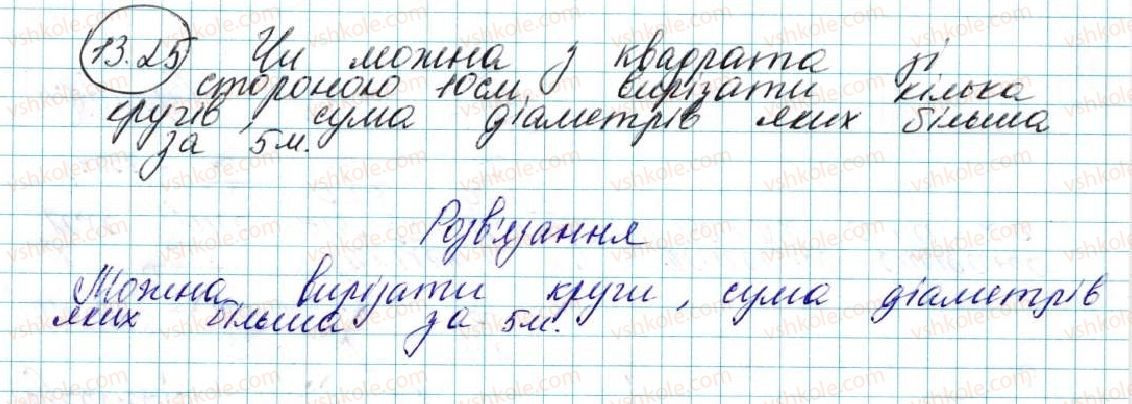 13.25 Чи можна з квадрата зі
стороною 10см вирізати кілька
кругів, сума діаметрів яких більша
за 5м.
Розв'язання
Можна вирізати круги, сума діаметрів
яких більша за 5м.